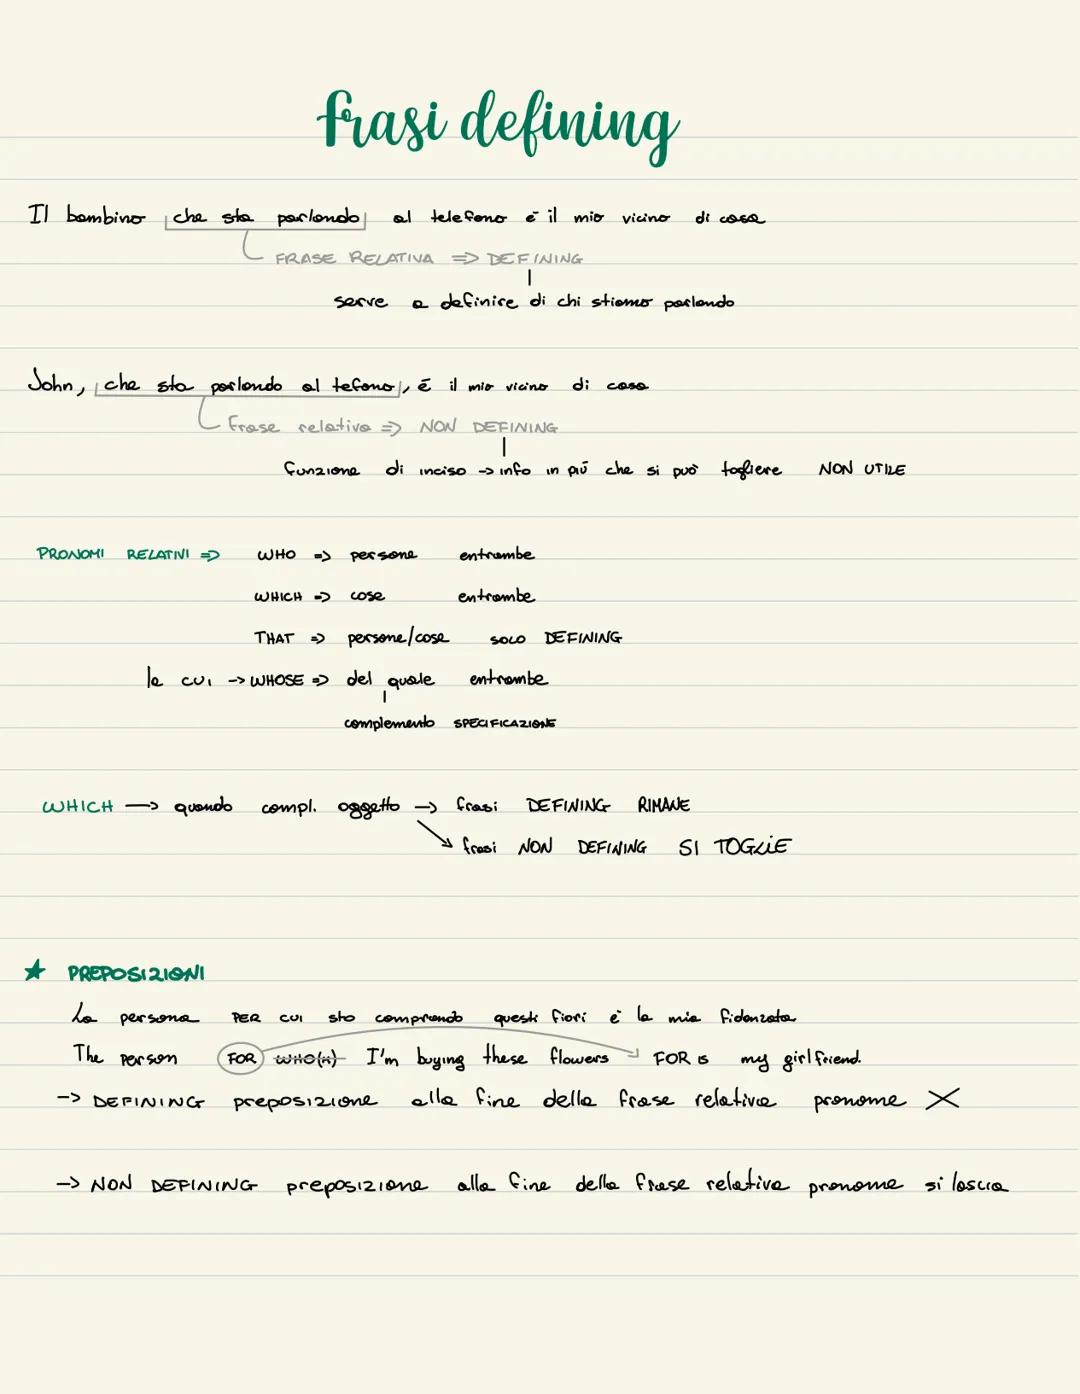 frasi defining
Il bambino che sta parlando al telefono é il mio vicino di casa
FRASE RELATIVA => DEFINING
serve a definire di chi stiamo parlando
John, che sta parlando al tefono, é il mio vicino di casa
frase relativa => NON DEFINING
funzione di inciso -> info in piú che si può togliere NON UTILE
PRONOMI RELATIVI => WHO => persone entrambe
WHICH => cose entrambe
THAT => persone/cose SOLO DEFINING
la cui -> WHOSE => del quale entrambe
complemento SPECIFICAZIONE
WHICH -> quando compl. oggetto -> frasi DEFINING RIMANE
frasi NON DEFINING SI TOGLIE
★ PREPOSIZIONI
La persona PER CUI sto comprando questi fiori é la mia fidanzata
The person FOR WHO(M) I'm buying these flowers FOR is my girlfriend.
-> DEFINING preposizione alla fine della frase relativa pronome X
-> NON DEFINING preposizione alla fine della frase relativa pronome si lascia